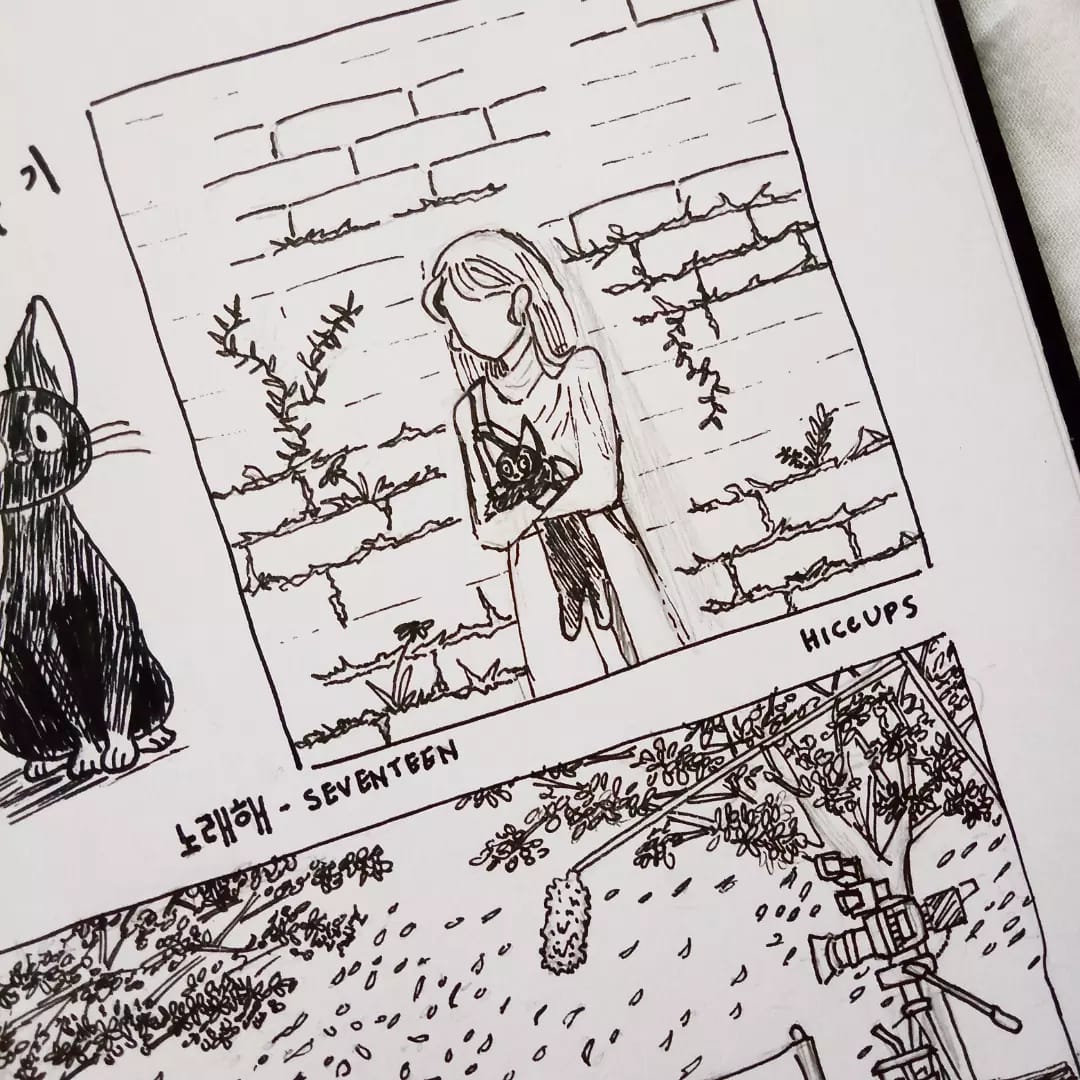 기
HICCUPS
노래해 - SEVENTEEN